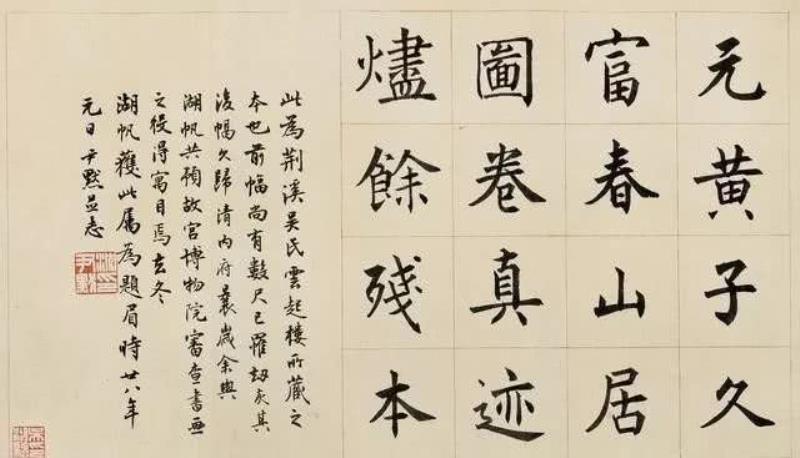 元黄子久
富春山居
圖卷真迹
燼餘殘本
此為荆溪吴氏雲起樓所藏之
本也前幅尚有數尺已罹劫灰其
後幅久歸清内府曩歲余與
湖帆共預故宫博物院審查書画
之役得寓目焉去冬
湖帆獲此屬為題眉時廿八年
元日尹默并志